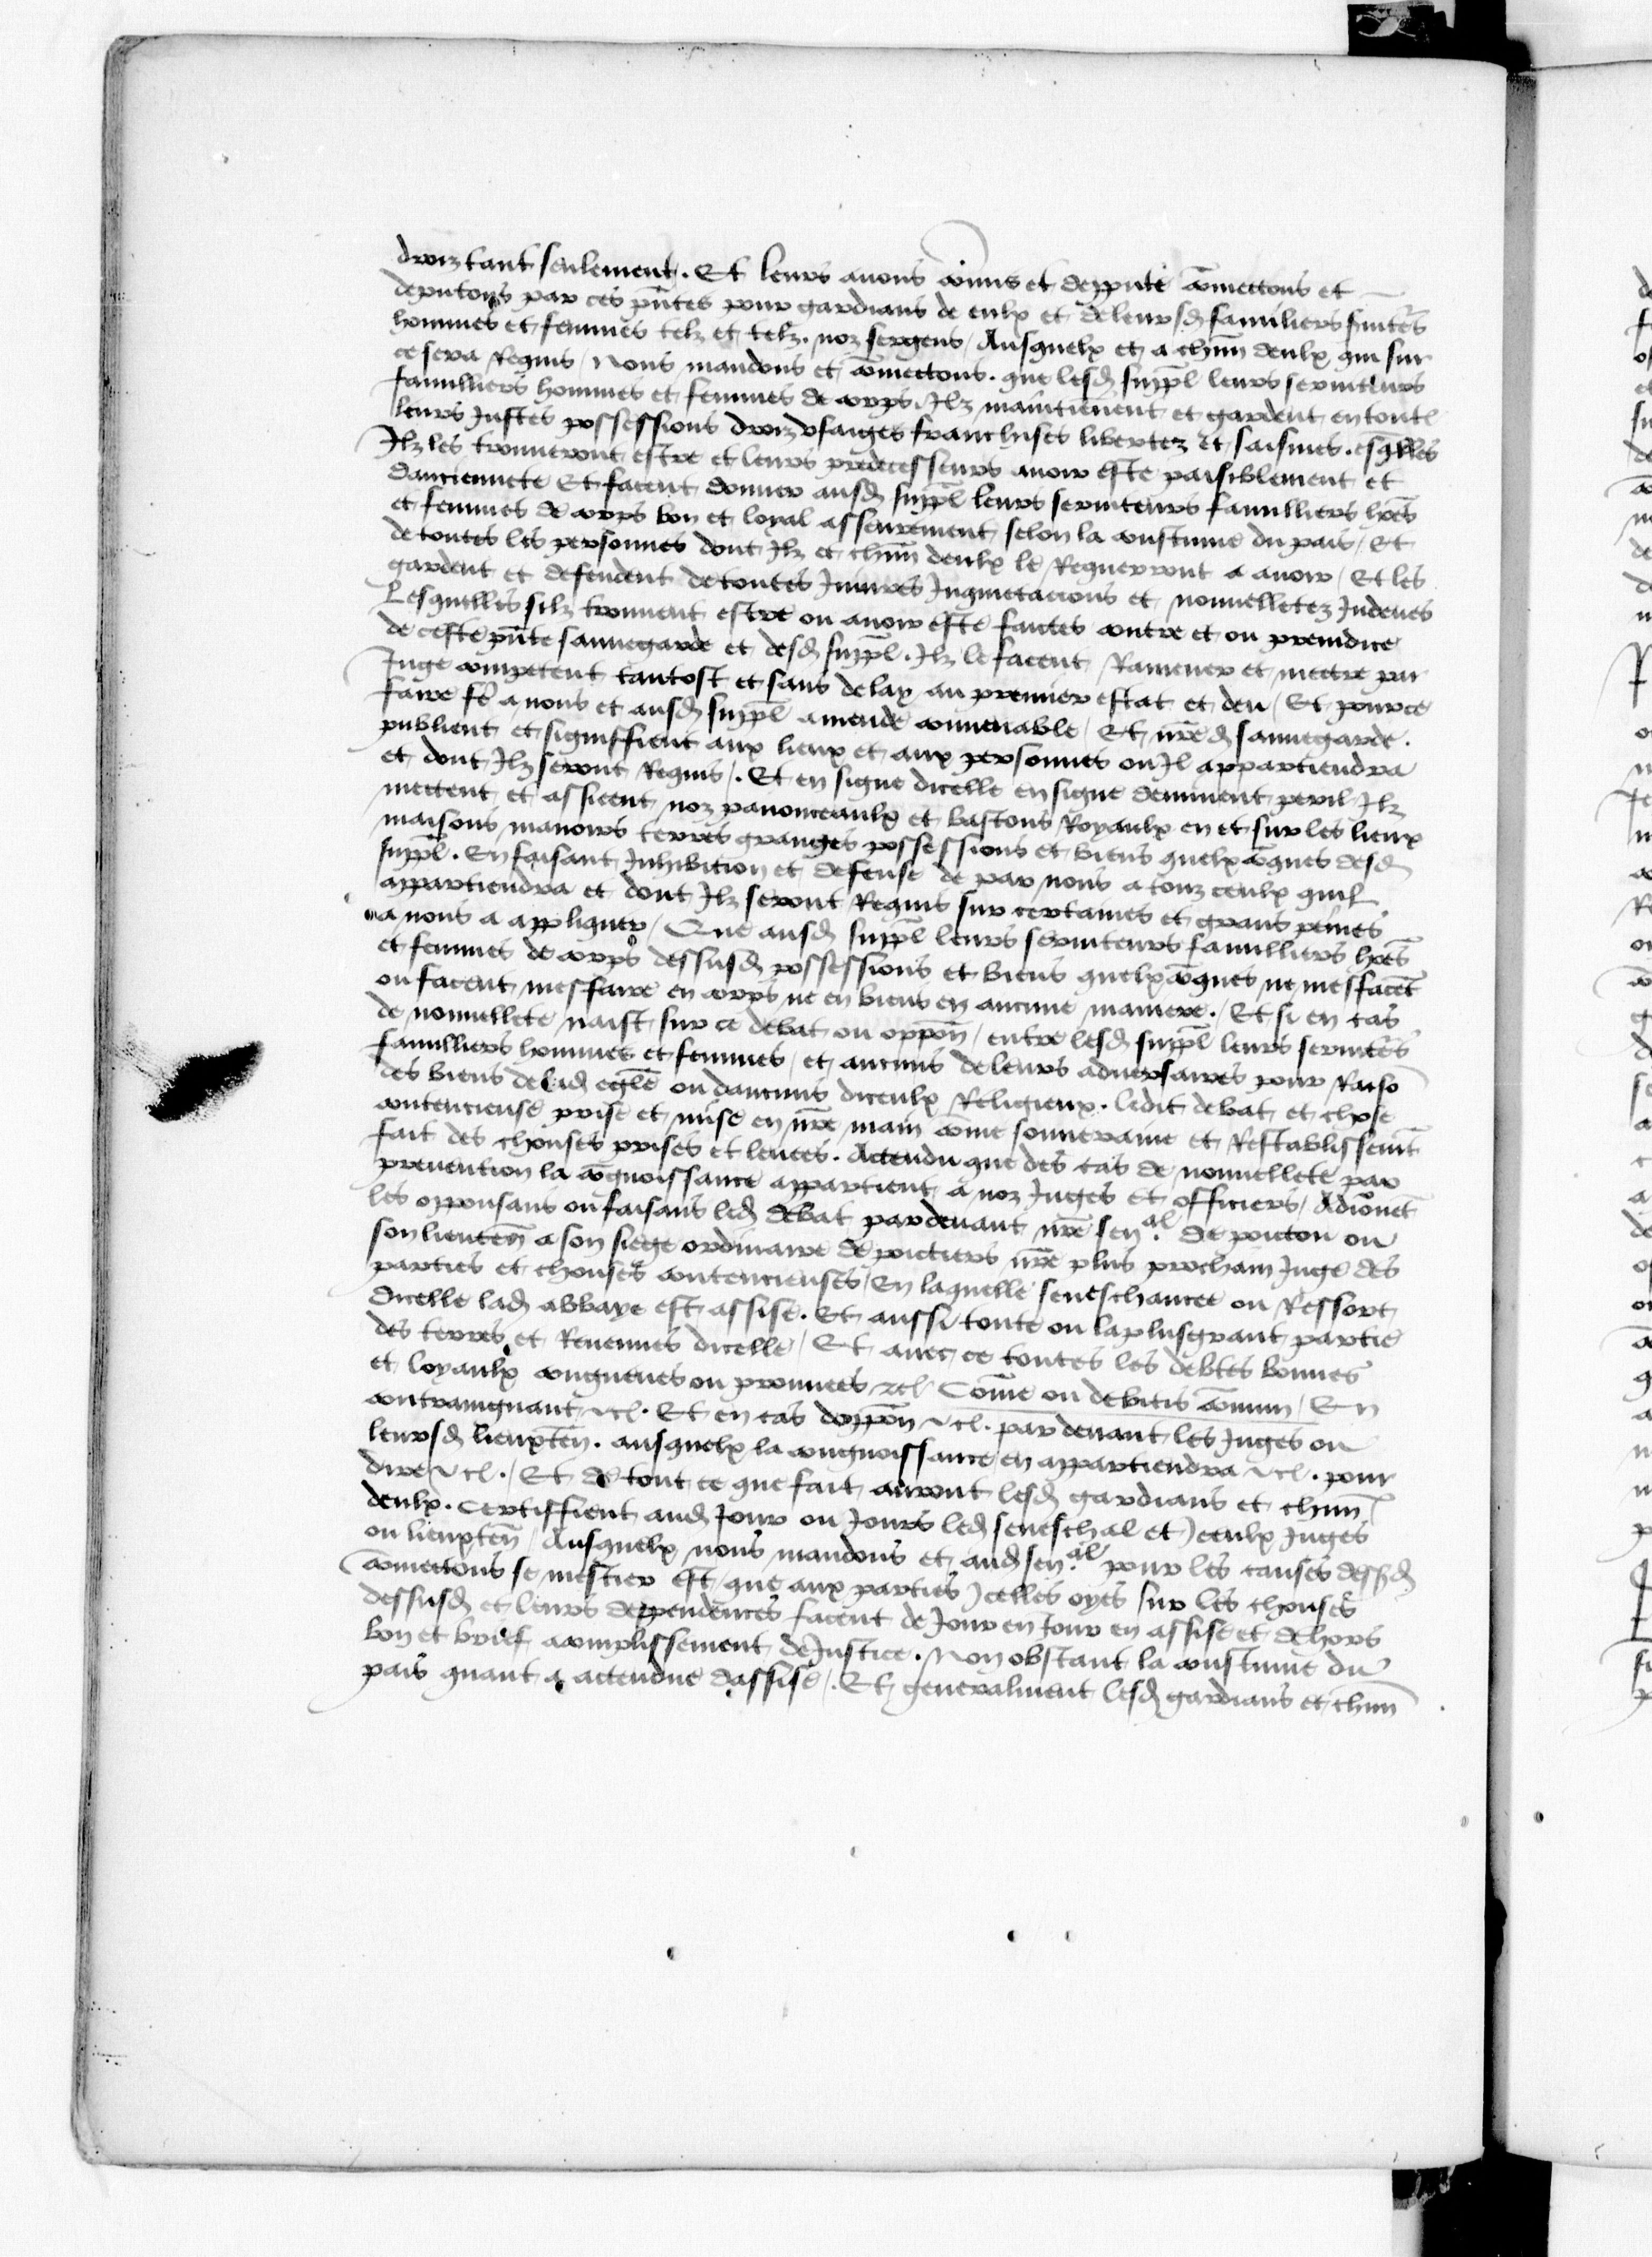 droiz tant seulement. Et leurs auons cōmis et deppute cōmettons et
deputons par ces pñtes pour gardians de eulx et de leursd familiers suiters
hommes et femmes telz et telz. noz sergens / Ausquelx et a chun deulx qui sur
ce sera Requis / Nous mandons et cōmettons. que lesd suppl leurs seruiteurs
familliers hommes et femmes de corps. Ilz maintienent et gardent en toutes
leurs Justes possessions droiz vsaiges franchises libertez et saisines. esqlles
Ilz les trouueront estre et leurs predecesseurs auoir este paisiblement et
danciennete Et facent donner ausd suppl leurs seruiteurs familliers hões
et femmes de corps bon et loyal asseurement selon la coustume du pais / Et
de toutes les personnes dont Ilz et chun deulx le Requerront a auoir / Et les
gardent et defendent de toutes Iniures Inquietacions et nouuelletez Indeues
Lesquelles silz trouuent estre ou auoir este faictes contre et ou preiudice
de ceste pñte sauuegarde et desd suppl. Ilz le facent Ramener et mettre par
Juge competent tantost et sans delay au premier estat et deu / Et pour ce
faire fe a nous et ausd suppl amende conuenable / Et nred sauuegarde.
publient et signiffient aux lieux et aux personnes ou Il appartiendra
et dont Ilz seront Requis /. Et en signe dicelle en signe deminent peril Ilz
mettent et assieent noz panonceaulx et bastons Royaulx en et sur les lieux
maisons manoirs terres granges possessions et biens quelxcōques desd
suppl. En faisant Inhibition et defense de par nous a touz ceulx quil
appartiendra et dont Ilz seront Requis sur certaines et grans peines
a nous a appliquer / Que ausd suppl leurs seruiteurs familliers hões
et femmes de corps dessusd possessions et biens quelxcōques ne mesfacent
ou facent mesfaire en corps ne en biens en aucune maniere. / Et si en cas
de nouuellete naist sur ce debat ou oppōn / entre lesd suppl leurs seruiters
familliers hommes et femmes / et aucuns de leurs aduersaires pour Raiso
des biens de lad eglē ou daucuns diceulx Religieux. ledit debat et chose
contencieuse prise et mise en nrē main cōme souueraine et Restablissemt
fait des chouses prises et leuees. Attendu que des cas de nouuellete par
preuention la cōgnoissance appartient a noz Juges et officiers / Adiōnet
les opposans ou faisans led debat pardeuant nrē sen.al de poictou ou
son lieuteñ a son siege ordinaire de poictiers nrē plus prochain Juge des
parties et chouses contencieuses / En laquelle seneschaucee ou Ressort
dicelle lad abbaye est assise. Et aussi toute ou la plusgrant partie
des terres et Reuenues dicelle / Et auec ce toutes les debtes bonnes
et loyaulx congneues ou prouuees etc Cōme ou debitis cōmun / En
contraingnant etc. Et en cas doppōn etc. par deuant les Juges ou
leursd lieuxteñ. ausquelx la congnoissance en appartiendra etc. pour
dire etc. / Et de tout ce que fait auront lesd gardians et chun
deulx. certiffient aud Jour ou Jours led seneschal et Iceulx Juges
ou lieuxteñ / Ausquelx nous mandons et aud sen.al pour les causes dessd
cōmettons se mestier est / que aux parties Icelles oyes sur les chouses
dessusd et leurs deppendences facent de Jour en Jour en assise et dehors
bon et brief acomplissement de Justice. Non obstant la coustume du
pais quant a attendue dassise /. Et generalment lesd gardians et chun